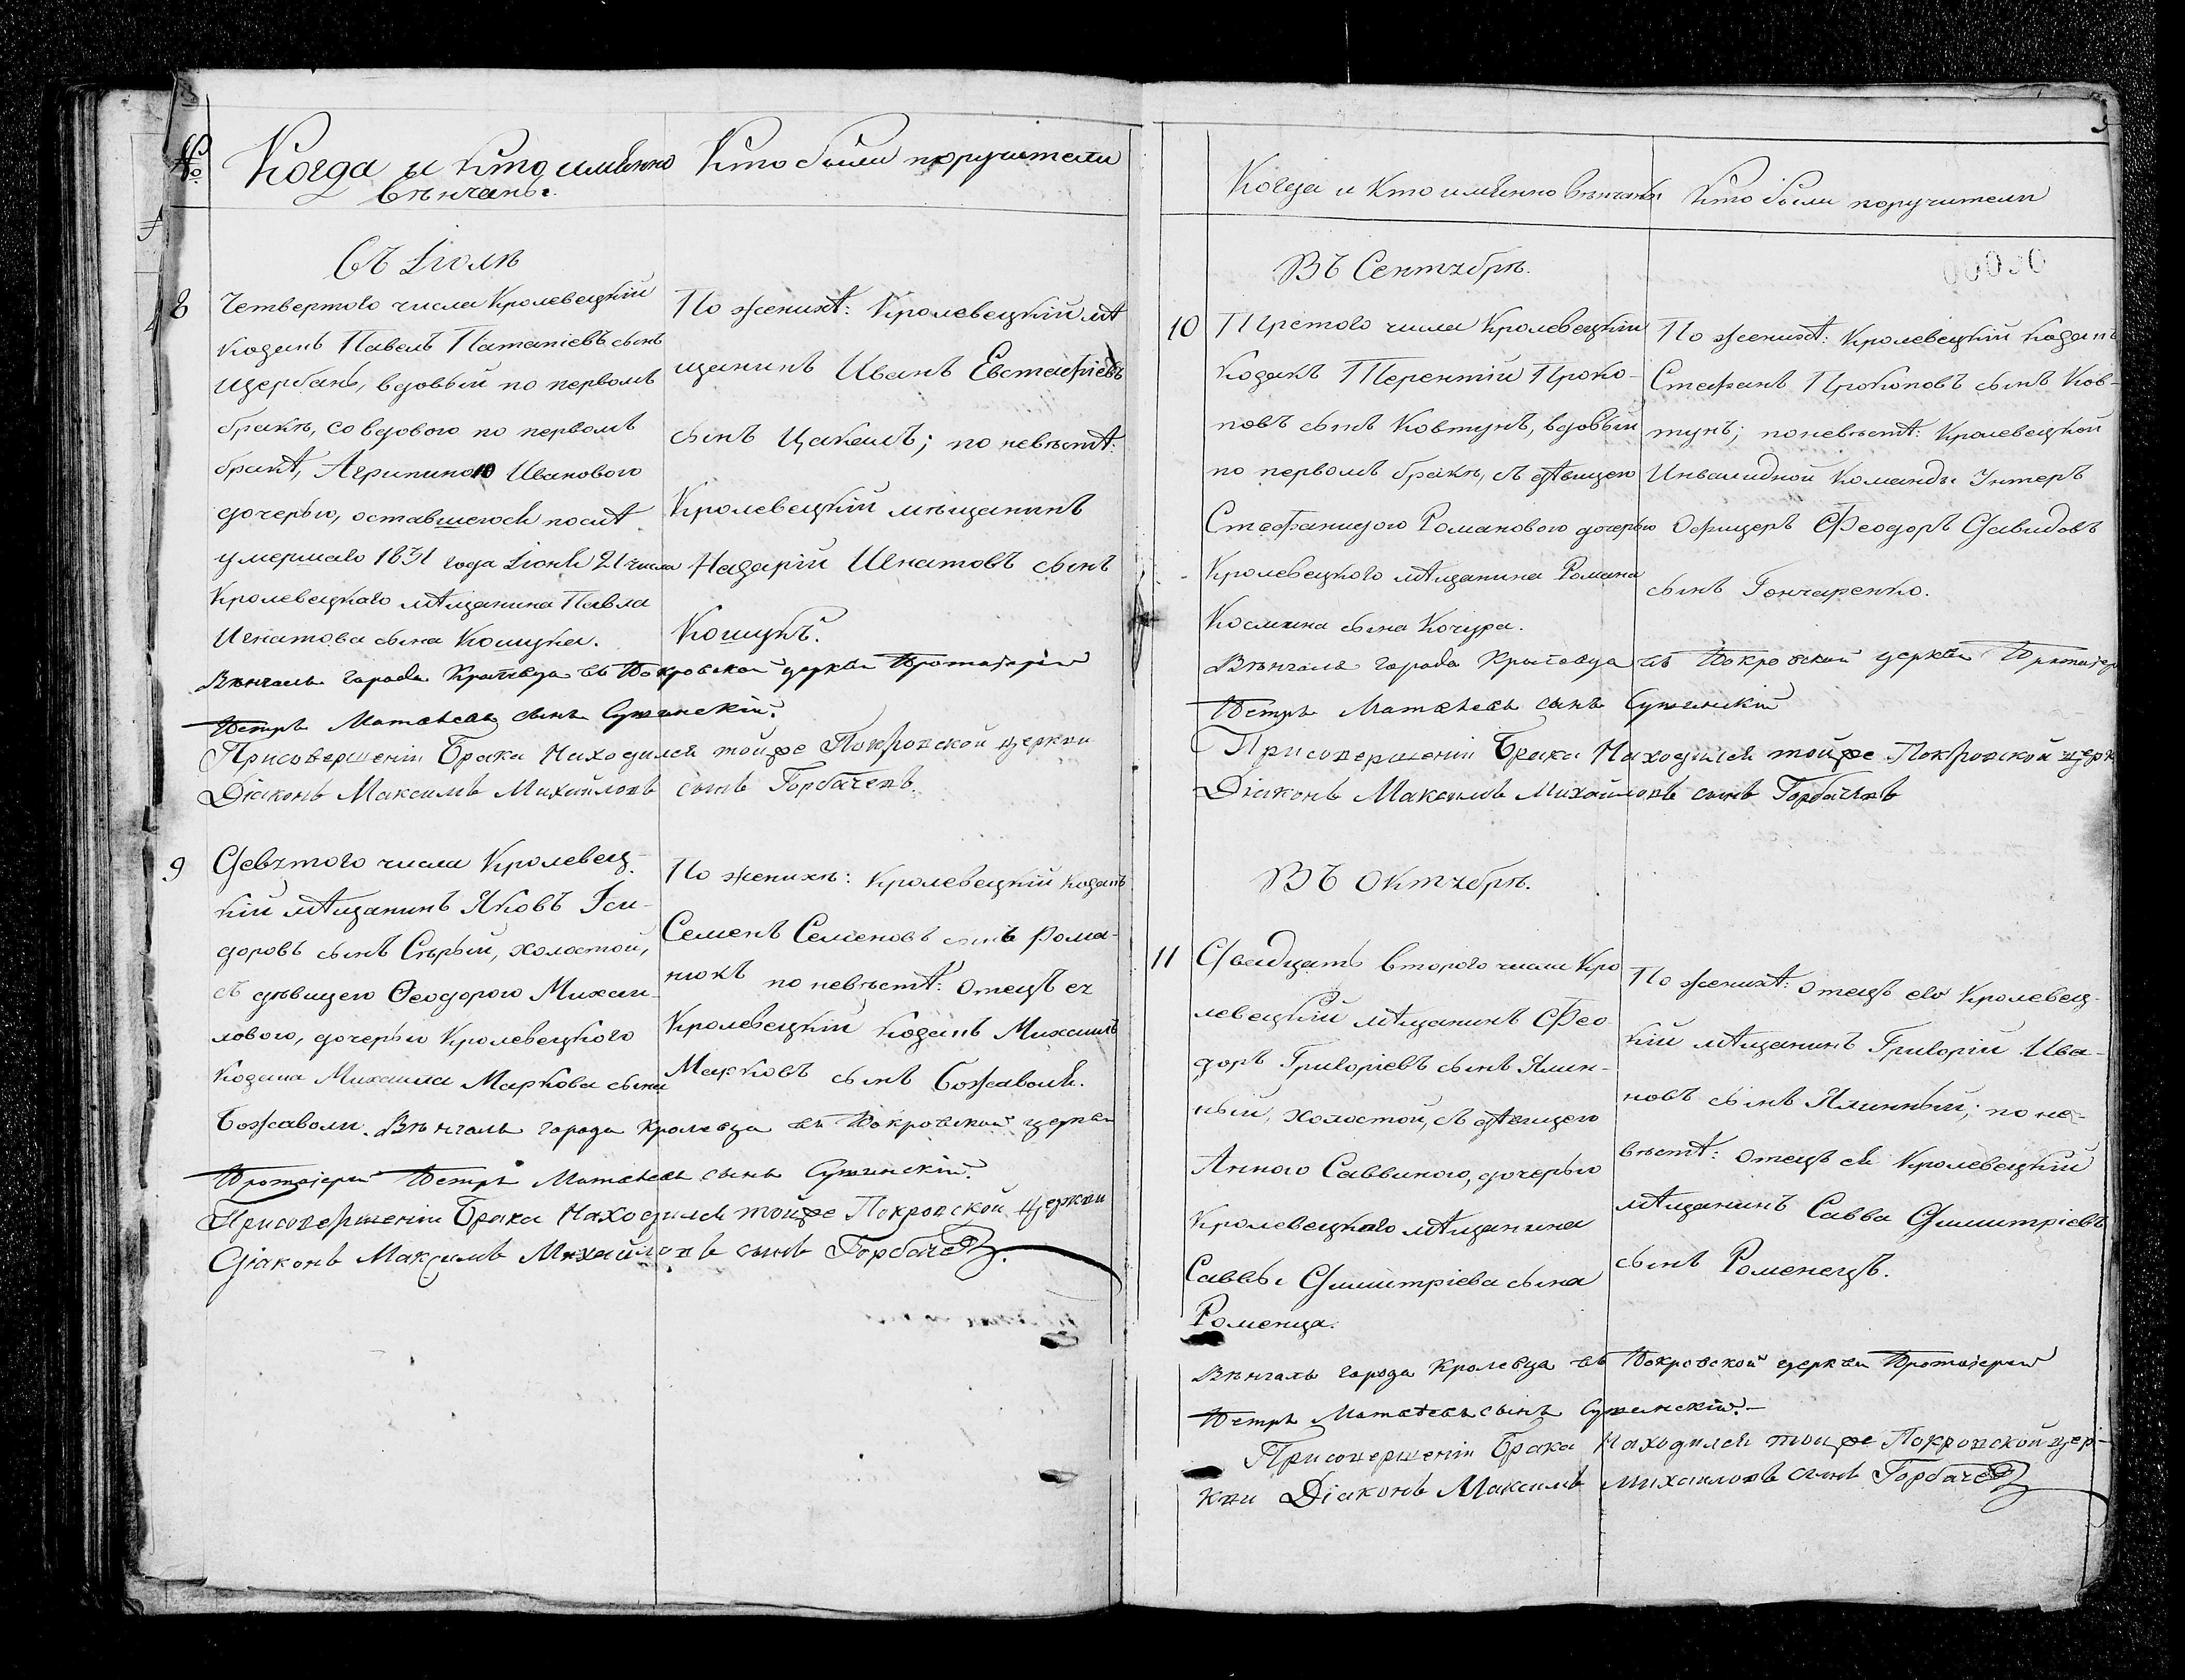 №
Когда и кто именно
вѣнчаны.
Кто были поручители
Въ Іюлѣ
8
Четвертого числа Кролевецкій
козакъ Павелъ Патапіевъ сынъ
Щербакъ, вдовый по первомъ
бракѣ, со вдовою по первомъ
бракѣ, Агрипиною Ивановою
дочерью, оставшеюся послѣ
умершаго 1831 года Іюня 21 числа
Кролевецкаго мѣщанина Павла
Игнатова сына Кошука.
По женихѣ: Кролевецкій мѣ
щанинъ Иванъ Евстафіевъ
сынъ Цакелъ; по невѣстѣ:
Кролевецкій мѣщанинъ
Назарій Игнатовъ сынъ
Кошукъ.
Вѣнчалъ города Кролевца въ Покровской церкви Протоіерей
Петръ Матвѣевъ сынъ Сужинскій.
Присовершеніи Брака Находился тойже Покровской церкви
Діаконъ Максимъ Михайловъ сынъ Горбачевъ.
9
Девятого числа Кролевец-
кій мѣщанинъ Яковъ Іси-
доровъ сынъ Сѣрый, холостой,
съ дѣвицею Ѳеодорою Михаи-
ловою, дочерью Кролевецкого
козака Михаила Маркова сына
Божаволи.
По женихѣ: Кролевецкій козакъ
Семенъ Семеновъ сынъ Рома-
нюкъ по невѣстѣ: Отецъ ея
Кролевецкій козакъ Михаилъ
Марковъ сынъ Божаволя.
Вѣнчалъ города Кролевца въ Покровской церкви
Протоіерей Петръ Матвѣевъ сынъ Сужинскій.
Присовершеніи Брака Находился тойже Покровской Церкви
Діаконъ Максимъ Михайловъ сынъ Горбачевъ.
Когда и кто именно вѣнчаны
Кто были поручители
Въ Сентябрѣ.
10
Третого числа Кролевецкій
козакъ Терентій Проко-
повъ сынъ Ковтунъ, вдовый
по первомъ бракѣ, съ дѣвицею
Стефанидою Романовою дочерью
Кролевецкого мѣщанина Романа
Космина сына Кочура.
По женихѣ: Кролевецкій козакъ
Стефанъ Прокоповъ сынъ Ков-
тунъ; по невѣстѣ: Кролевецкой
Инвалидной Команды Унтеръ
Офицеръ Феодоръ Давидовъ
сынъ Гончаренко.
Вѣнчалъ города Кролевца въ Покровской церкви Протоіер
Петръ Матвѣевъ сынъ Сужинскій
Присовершеніи Брака Находился тойже Покровской церк
Діаконъ Максимъ Михайловъ сынъ Горбачевъ
Въ Октябрѣ.
11
Двадцать второго числа Кро
левецкій мѣщанинъ Фео
доръ Григоріевъ сынъ Ялин-
ный, холостой, съ дѣвицею
Анною Саввиною, дочерью
Кролевецкаго мѣщанина
Саввы Димитріева сына
Роменца.
По женихѣ: отецъ его Кролевец-
кій мѣщанинъ Григорій Ива-
новъ сынъ Ялинный; по не-
вѣстѣ: Отецъ ея Кролевецкій
мѣщанинъ Савва Димитріевъ
сынъ Роменецъ.
Вѣнчалъ города Кролевца въ Покровской церкви Протоіерей
Петръ Матвѣевъ сынъ Сужинскій.
Присовершеніи Брака Находился тойже Покровской цер-
кви Діаконъ Максимъ Михаиловъ сынъ Горбачевъ